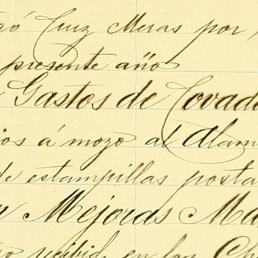 gó Cruz Meras por
presente año
Gastos de Covad
ios á mozo al Alam
de estampillas posta
Mejoras Ma
recibid en las Ch